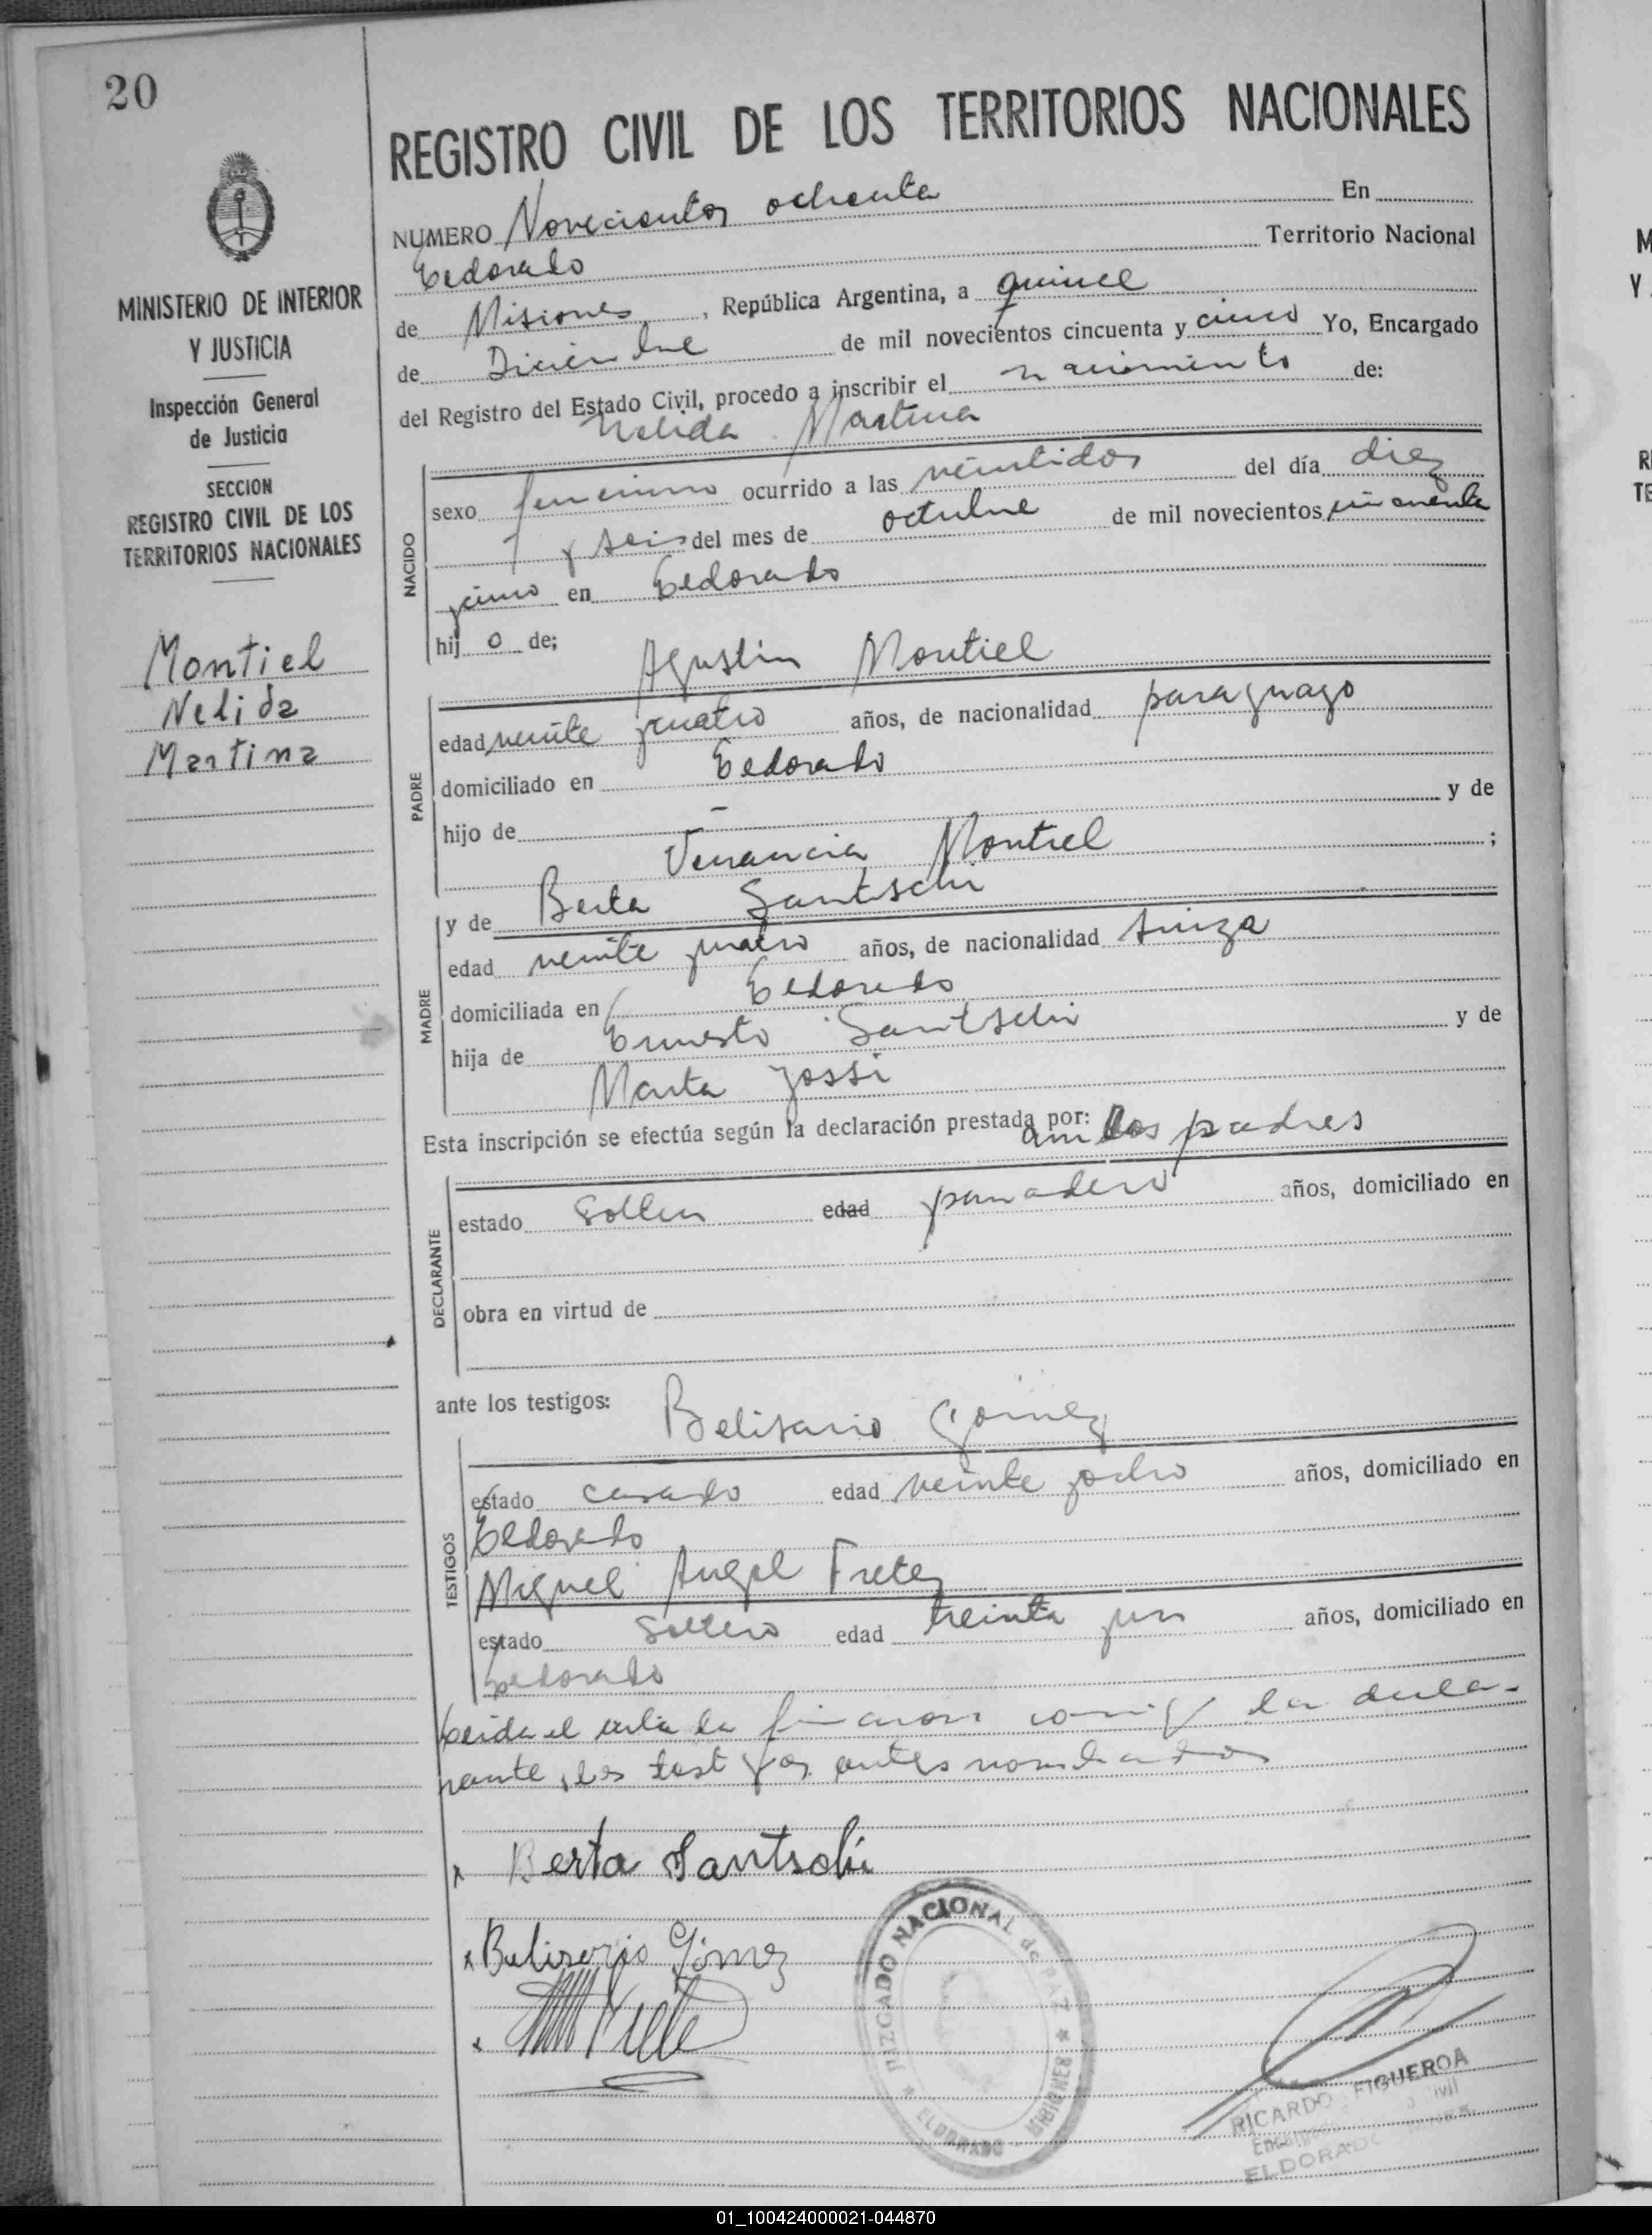 20
MINISTERIO DE INTERIOR
Y JUSTICIA
Inspección General
de Justicia
SECCION
REGISTRO CIVIL DE LOS
TERRITORIOS NACIONALES
Montiel
Nelida
Martina
REGISTRO CIVIL DE LOS TERRITORIOS NACIONALES
NUMERO Novecientos ochenta En
Eldorado Territorio Nacional
de Misiones, República Argentina, a quince
de Diciembre de mil novecientos cincuenta y cinco Yo, Encargado
del Registro del Estado Civil, procedo a inscribir el nacimiento de:
Nelida Martina
NACIDO
sexo femenino ocurrido a las veintidos del día diez
y seis del mes de octubre de mil novecientos cincuenta
ycinco en Eldorado
hij o de;
Agustin Montiel
PADRE
edad veinte ycuatro años, de nacionalidad paraguayo
domiciliado en Eldorado
hijo de - y de
Venancia Montiel ;
MADRE
y de Berta Santschi
edad veinte ycuatro años, de nacionalidad suiza
domiciliada en Eldorado
hija de Ernesto Santschi y de
Marta Jossi
Esta inscripción se efectúa según la declaración prestada por: ambos padres
DECLARANTE
estado edad panadero años, domiciliado en
obra en virtud de
ante los testigos:
Belisario Gómez
TESTIGOS
estado casado edad veinte yocho años, domiciliado en
Eldorado
Miguel Angel Fretez
estado soltero edad treinta yun años, domiciliado en
Eldorado
Leida el acta la firmaron conmigo la decla-
rante, los testigos antes nombrados
x Berta Santschi
x Belisario Gómez
x
JUZGADO NACIONAL de PAZ * ELDORADO - MISIONES *
RICARDO FIGUEROA
ELDORADO
M
Y
RE
TE
01_100424000021-044870